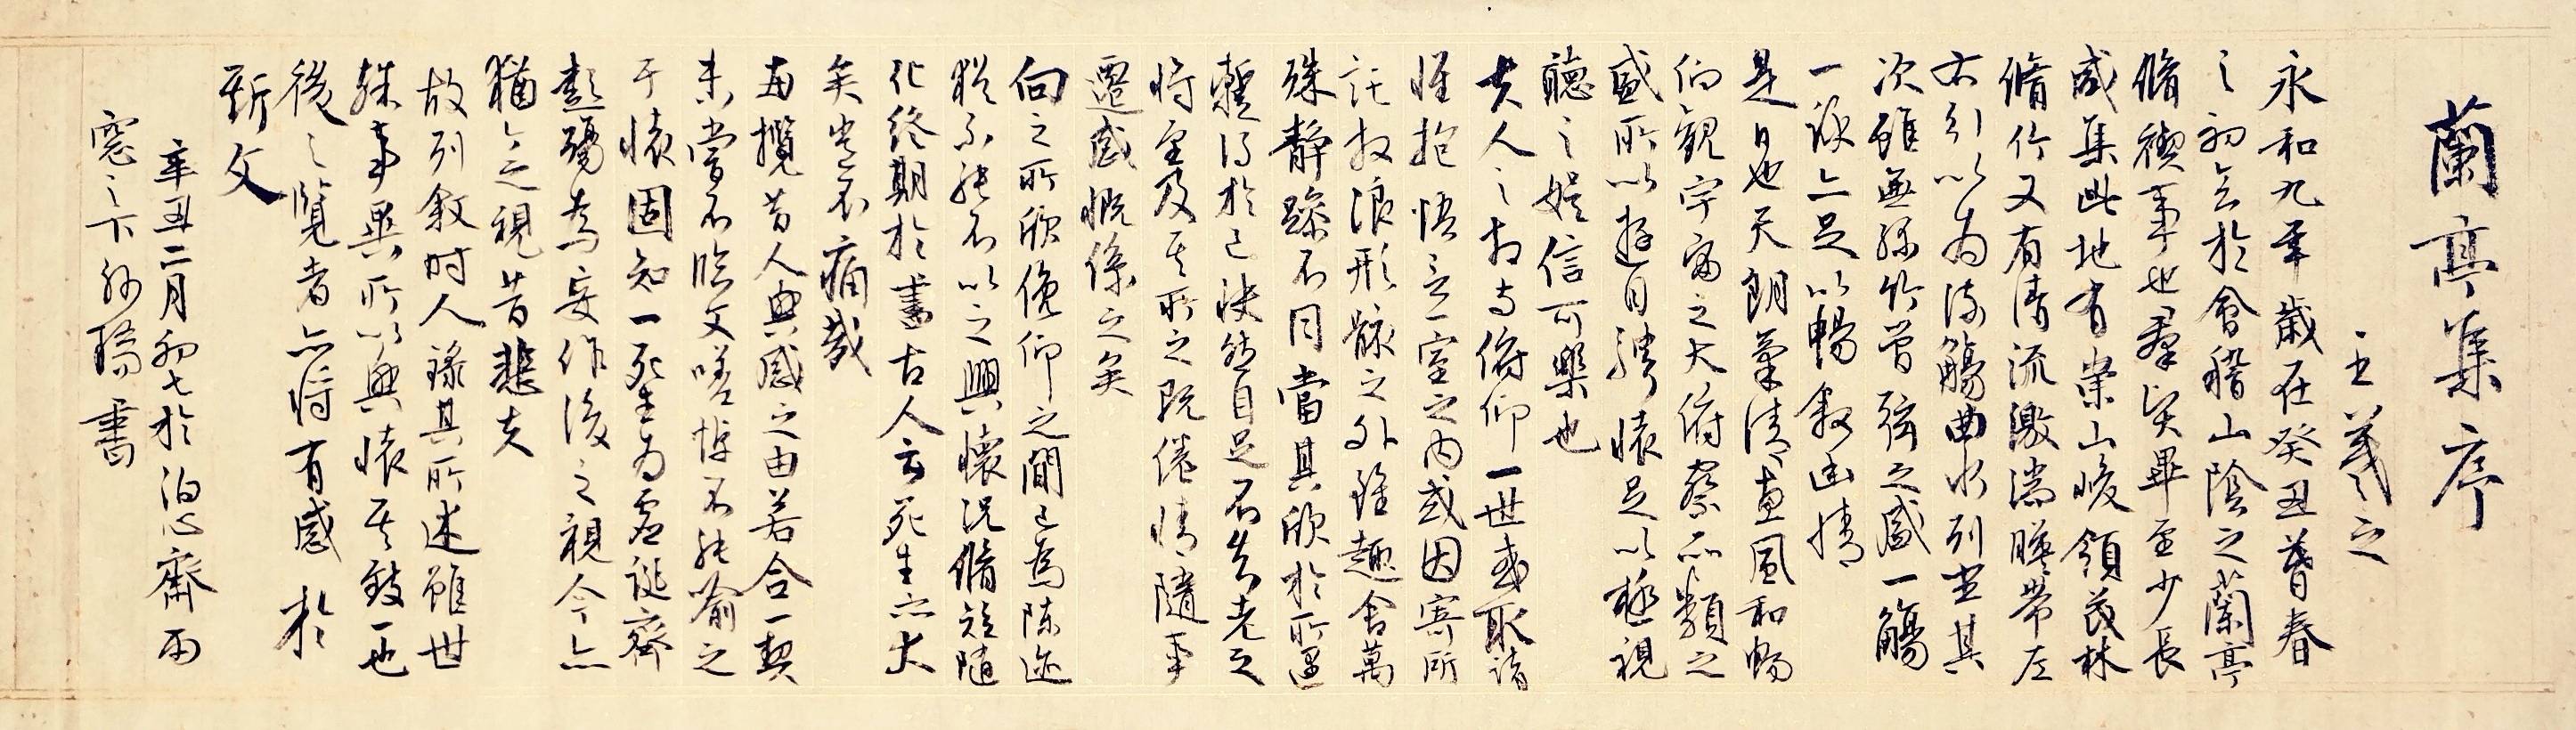 蘭亭集序
王羲之
永和九年歲在癸丑暮春
之初會於會稽山陰之蘭亭
脩禊事也羣賢畢至少長
咸集此地有崇山峻領茂林
脩竹又有清流激湍暎帶左
右引以為流觴曲水列坐其
次雖無絲竹管弦之盛一觴
一詠亦足以暢敘幽情
是日也天朗氣清惠風和暢
仰觀宇宙之大俯察品類之
盛所以遊目騁懷足以極視
聽之娛信可樂也
夫人之相與俯仰一世或取諸
懷抱悟言一室之內或因寄所
託放浪形骸之外雖趣舍萬
殊靜躁不同當其欣於所遇
蹔得於己怏然自足不知老之
將至及其所之既倦情隨事
遷感慨係之矣
向之所欣俛仰之間已為陳迹
猶不能不以之興懷況脩短隨
化終期於盡古人云死生亦大
矣豈不痛哉
每攬昔人興感之由若合一契
未嘗不臨文嗟悼不能喻之
於懷固知一死生為虛誕齊
彭殤為妄作後之視今亦
猶今之視昔悲夫
故列敘時人錄其所述雖世
殊事異所以興懷其致一也
後之覽者亦將有感於
斯文
辛丑二月初七於泊心齋雨
窓之下 書